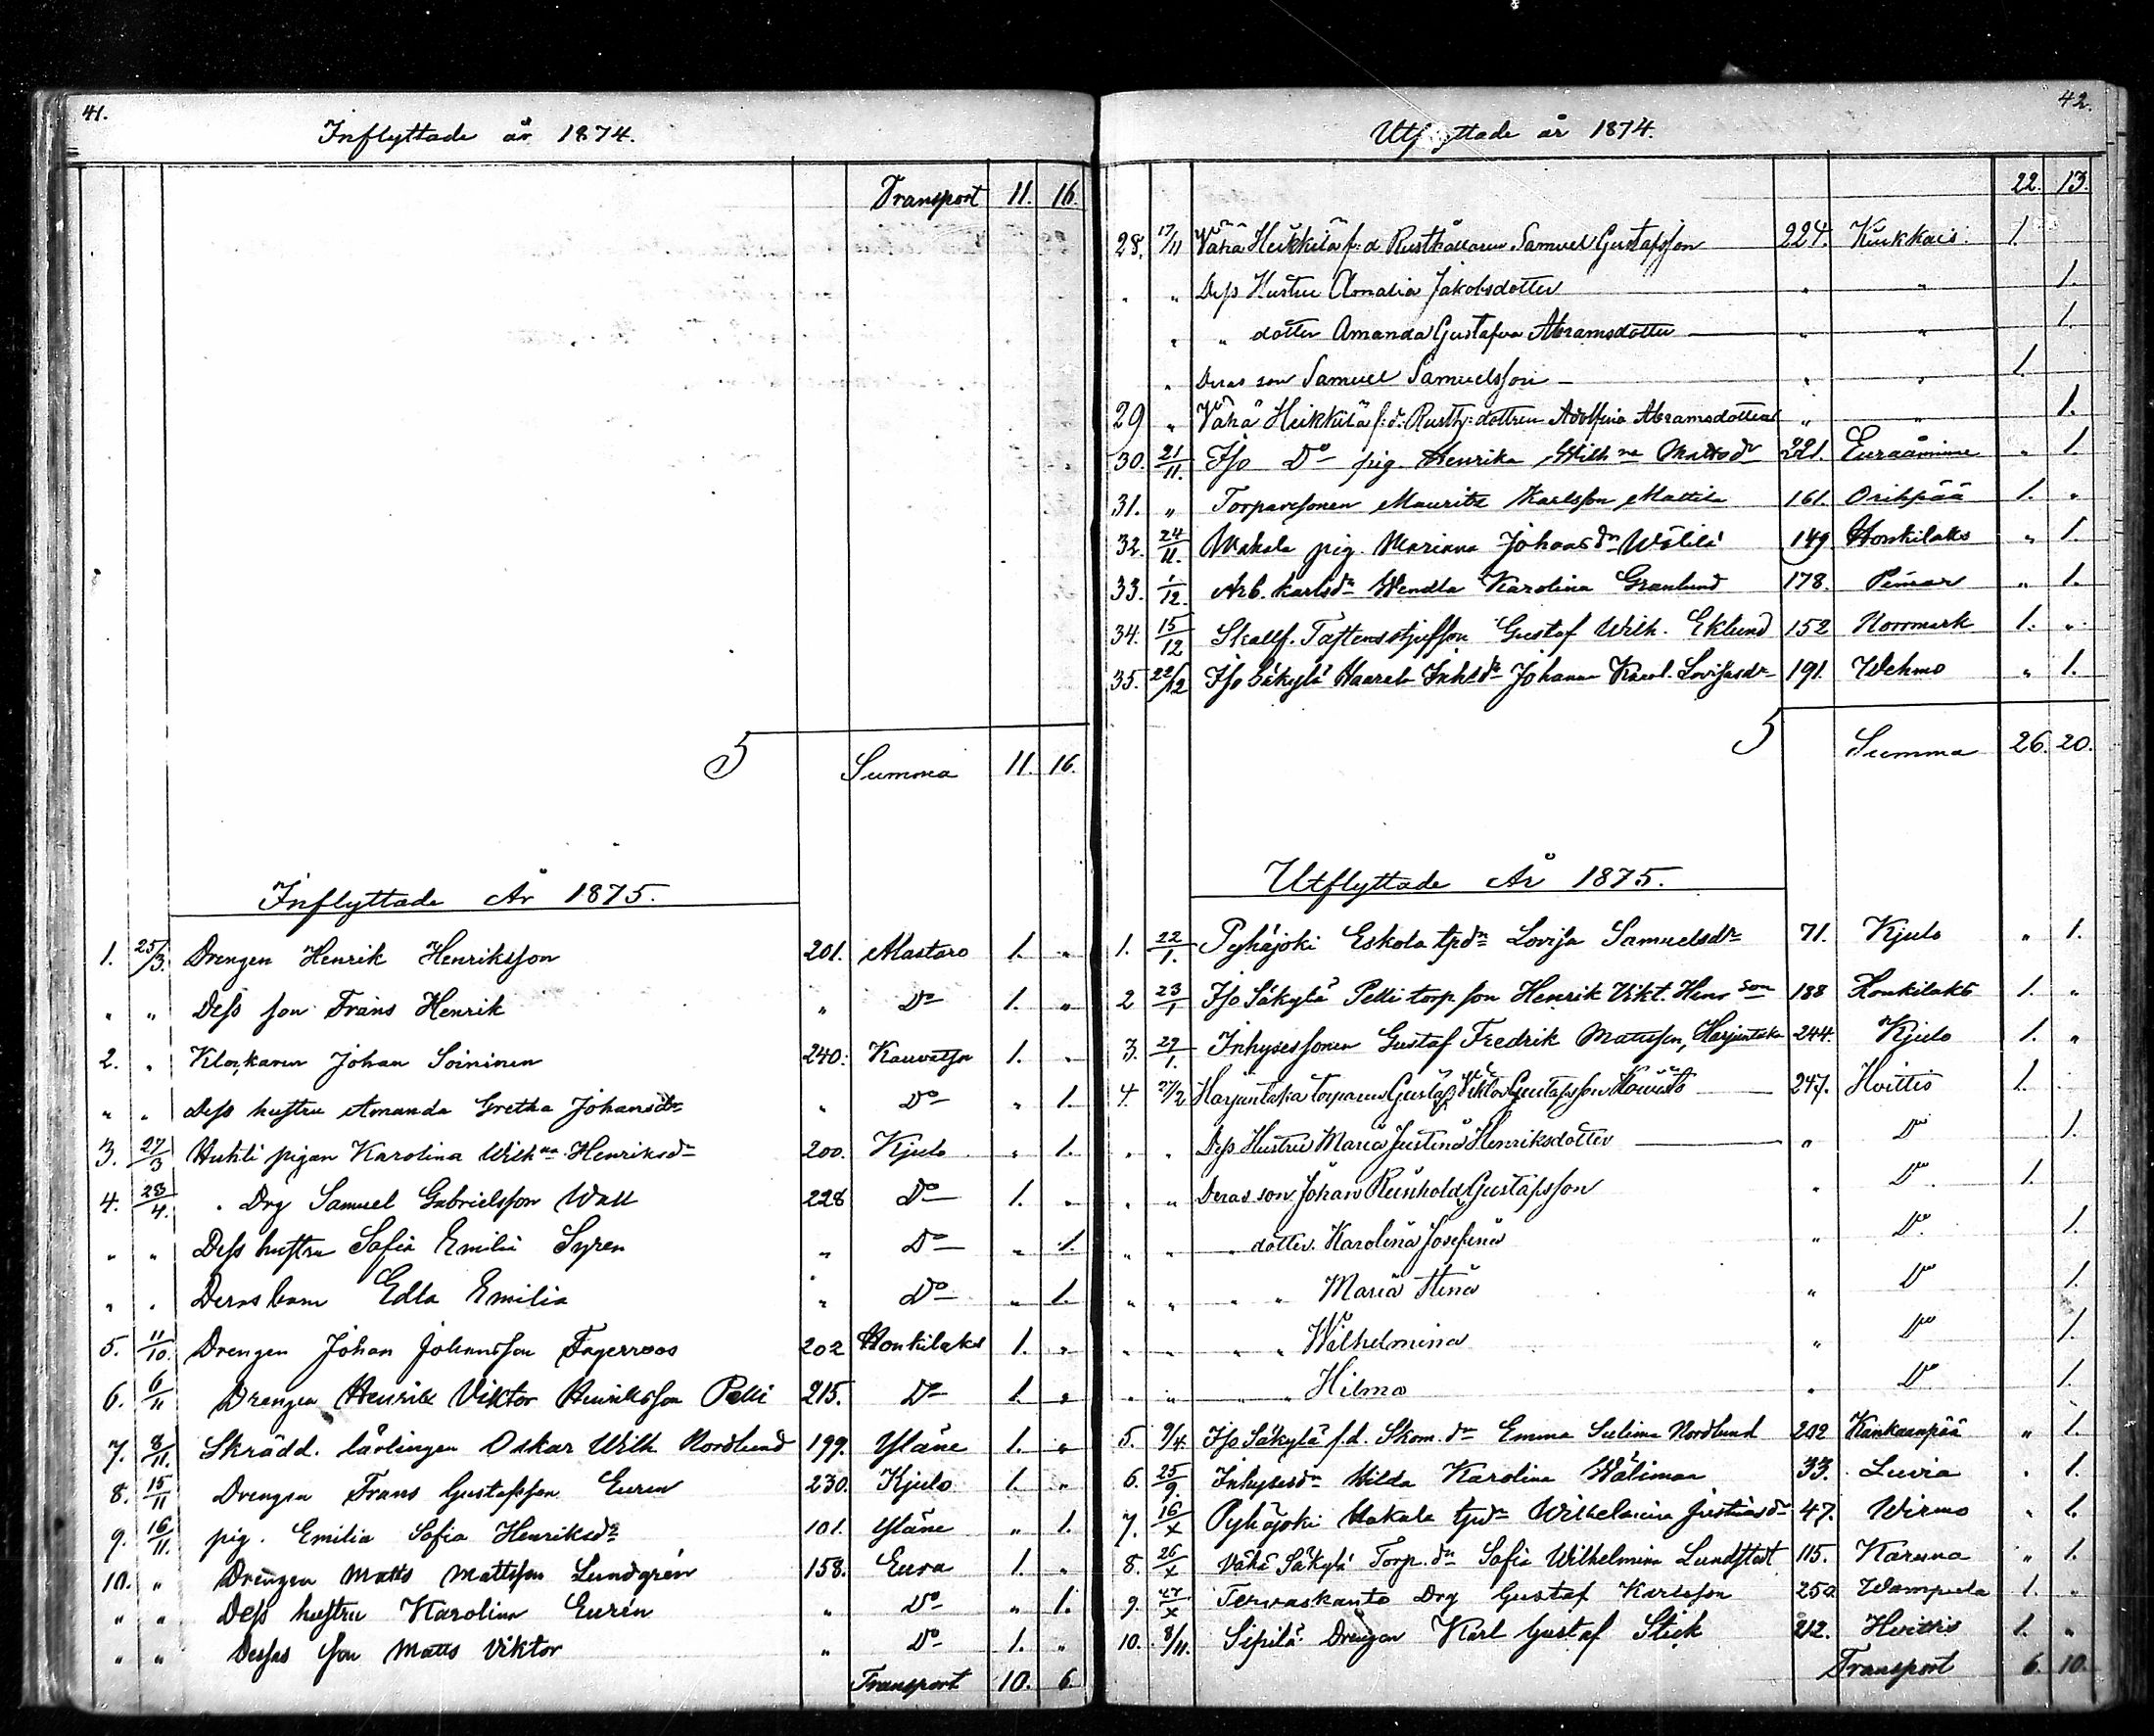 41.
Inflyttade år 1874.
Transport 11. 16.
Summa 11. 16.
Inflyttade År 1875.
1. 25/3. Drengen Henrik Henriksson 201. Alastaro 1. "
" " Dess son Frans Henrik " Do 1. "
2. " Klockaren Johan Soininen 240. Kauvatsa 1. "
" " Dess hustru Amanda Gretha Johansdr " Do " 1.
3. 27/3 Huhti pigan Karolina Wilhna Henriksdr 200. Kjulo " 1.
4. 23/4. " Drg Samuel Gabrielsson Wall 228 Do 1. "
" " Dess hustru Sofia Emilia Syren " Do " 1.
" " Deras barn Edla Emilia " Do " 1.
5. 11/10. Drengen Johan Johansson Fagerroos 202 Honkilaks 1. "
6. 6/11 Drengen Henrik Viktor Henriksson Pelli 215. Do 1. "
7. 8/11. Skrädd. lärlingen Oskar Wilh. Nordlund 199. Yläne 1. "
8. 15/11 Drengen Frans Gustafsson Euren 230. Kjulo 1. "
9. 16/11. pig. Emilia Sofia Henriksdr 101. Yläne " 1.
10. " Drengen Matts Mattsson Lundgrén 158. Eura 1. "
" " Dess hustru Karolina Eurén " Do " 1.
" " Dessas son Matts Viktor " Do 1. "
Transport 10. 6.
42.
Utflyttade år 1874.
22. 13.
28. 17/11 Vähä Heikkilä f:d Rusthållaren Samuel Gustafsson 224. Kiukkais 1.
" " Dess Hustru Amalia Jakobsdotter " " 1.
" " dotter Amanda Gustafva Abramsdotter " " 1.
" Deras son Samuel Samuelsson " " 1.
29 " Vähä Heikkilä f:d: Rusth: dottren Adolfina Abramsdotter " " 1.
30. 21/11. Iso Do pig. Henrika Wilhna Mattsdr 221. Euraåminne " 1.
31. " Torparesonen Mauritz Karlsson Mattila 161. Oripää 1. "
32. 24/11. Wakala pig. Mariana Johansdr Wälilä 149 Honkilaks " 1.
33. 1/12. Arb. karlsdr Wendla Karolina Granlund 178. Pemar " 1.
34. 15/12 Skallf. Gustaf Wilh. Eklund 152 Norrmark 1. "
35. 22/12 Iso Säkylä Haarala Inhsdr Johanna Karol. Lovisasdr 191. Wehmo " 1.
Summa 26. 20.
Utflyttade År 1875.
1. 22/1. Pyhäjoki Eskola tpdr Lovisa Samuelsdr 71. Kjulo " 1.
2 23/1 Iso Säkylä Pelli torp son Henrik Vikt. Henrson 188 Honkilaks 1. "
3. 29/1. Inhysessonen Gustaf Fredrik Mattsson, Harjuntaka 244. Kjulo 1. "
4. 27/2 Harjuntaka torparen Gustaf Viktor Gustafsson Kouvisto 247. Hvittis 1.
" " Dess Hustru Maria Justina Henriksdotter " Do 1.
" " Deras son Johan Reinhold Gustafsson " Do 1.
" " " dotter Karolina Josefina " Do 1.
" " " " Maria Stina " Do 1.
" " " " Wilhelmina " Do 1.
" " " " Hilma " Do 1.
5. 9/4. Iso Säkylä f.d. Skom. dr Emma Selima Nordlund 202 Kankaanpää " 1.
6. 25/9. Inhysesdr Hilda Karolina Wälimaa 33. Luvia " 1.
7. 16/x Pyhäjoki Uotila tpdr Wilhelmina Justinasdr 47. Wirmo " 1.
8. 26/x Vähä Säkylä Torp. dr Sofia Wilhelmina Lundstedt 115. Karuna " 1.
9. 27/x Tervaskanto Drg Gustaf Karlsson 250 Wampula 1. "
10. 8/11. Sipilä Drengen Karl Gustaf Stick 212. Hvittis 1. "
Transport 6. 10.